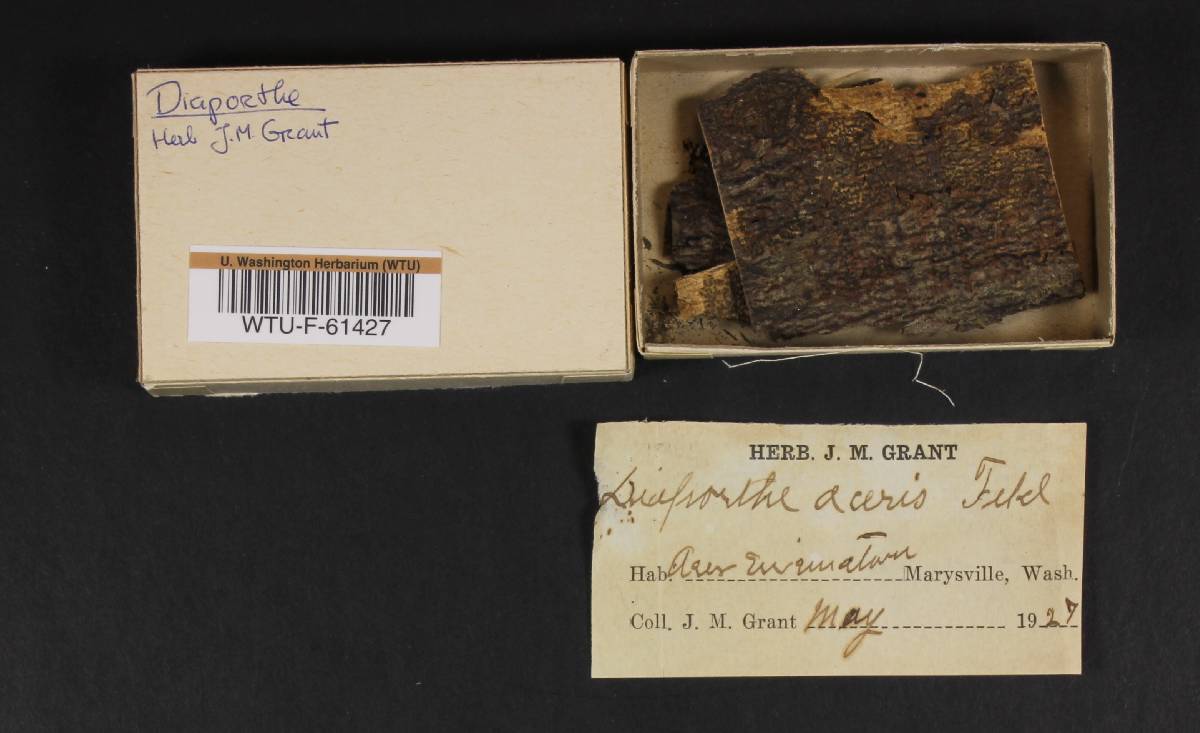 Diaporthe
Herb J.M. Grant
U. Washington Herbarium (WTU)
WTU-F-61427
HERB. J. M. GRANT
Diaporthe aceris Fckl
Hab. Acer Marysville, Wash.
Coll. J. M. Grant May 1927